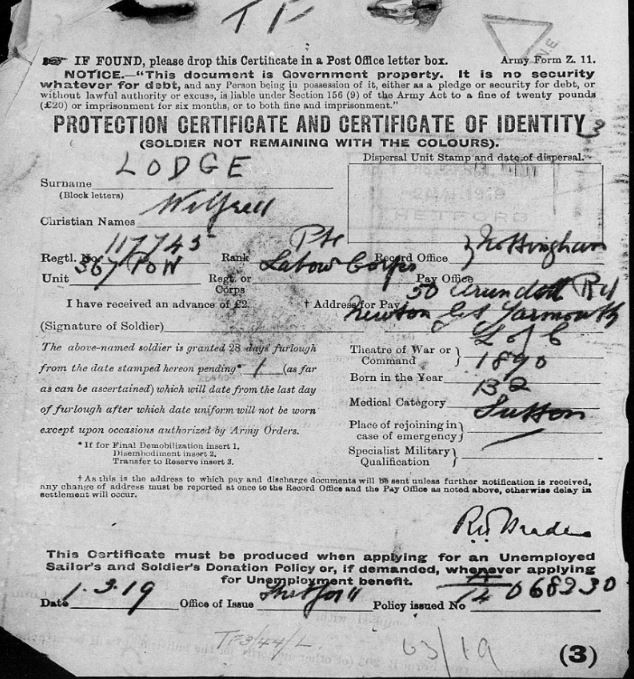 IF FOUND, please drop this Certificate in a Post Office letter box. Army Form Z. 11.
NOTICE.—"This document is Government property. It is no security
whatever for debt, and any Person being in possession of it, either as a pledge or security for debt, or
without lawful authority or excuse, is liable under Section 156 (9) of the Army Act to a fine of twenty pounds
(£20) or imprisonment for six months, or to both fine and imprisonment."
PROTECTION CERTIFICATE AND CERTIFICATE OF IDENTITY
(SOLDIER NOT REMAINING WITH THE COLOURS).
Dispersal Unit Stamp and date of dispersal.
THETFORD
Surname LODGE
(Block letters)
Christian Names Wilfred
Regtl. No. 117745 Rank Pte Record Office } Nottingham
Unit 567 POW Regt. or Corps Labour Corps Pay Office
I have received an advance of £2. † Address for Pay 50 Rd
(Signature of Soldier) Newton Gt Yarmouth
The above-named soldier is granted 28 days' furlough
from the date stamped hereon pending* 1 (as far
as can be ascertained) which will date from the last day
of furlough after which date uniform will not be worn
except upon occasions authorized by Army Orders.
* If for Final Demobilization insert 1.
Disembodiment insert 2.
Transfer to Reserve insert 3.
Theatre of War or Command } L of C
Born in the Year 1890
Medical Category B2
Place of rejoining in case of emergency } Sutton
Specialist Military Qualification }
† As this is the address to which pay and discharge documents will be sent unless further notification is received,
any change of address must be reported at once to the Record Office and the Pay Office as noted above, otherwise delay in
settlement will occur.
This Certificate must be produced when applying for an Unemployed
Sailor's and Soldier's Donation Policy or, if demanded, whenever applying
for Unemployment benefit.
Date 1.3.19 Office of Issue Thetford Policy issued No. A/12 068230
(3)